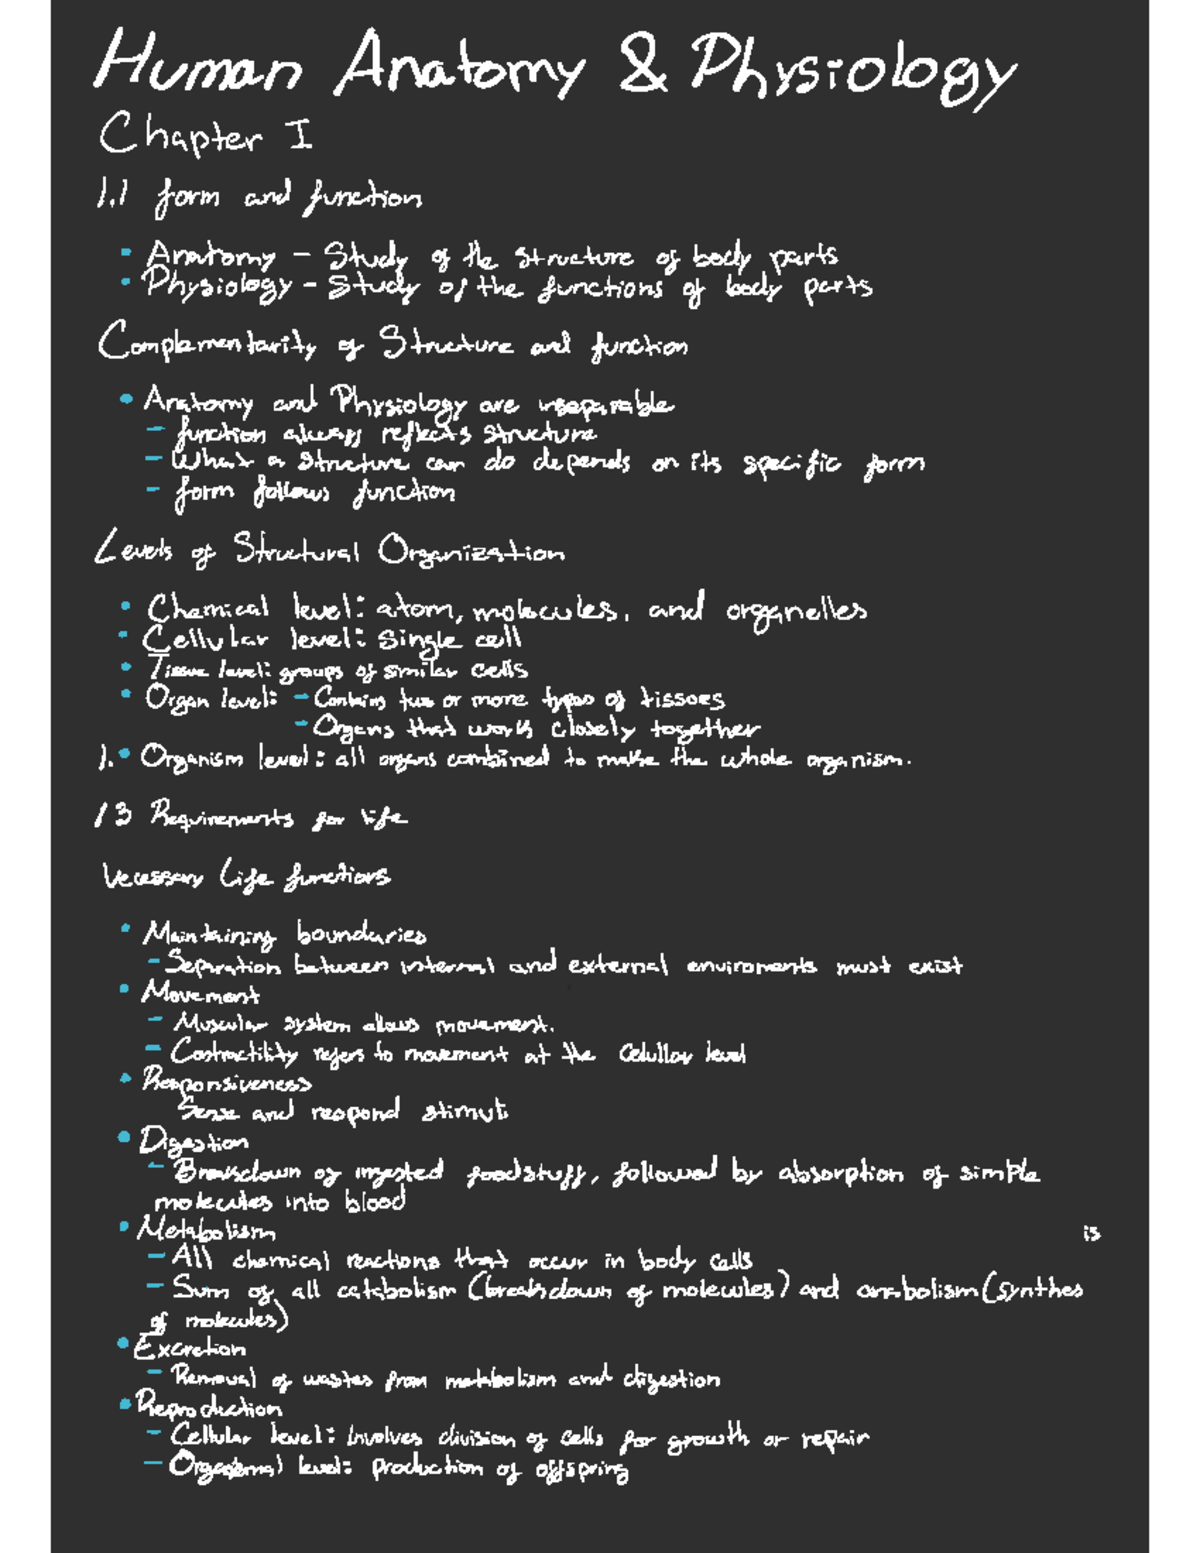 Human Anatomy & Physiology
Chapter I
1.1 form and function
Anatomy - Study of the structure of body parts
Physiology - Study of the functions of body parts
Complementarity of Structure and function
Anatomy and Physiology are inseparable
- function always reflects structure
- What a structure can do depends on its specific form
- form follows function
Levels of Structural Organization
Chemical level: atom, molecules, and organelles
Cellular level: single cell
Tissue level: groups of similar cells
Organ level: - Contains two or more types of tissues
- Organs that work closely together
1. Organism level: all organs combined to make the whole organism.
1 3 Requirements for life
Necessary Life functions
Maintaining boundaries
- Separation between internal and external environments must exist
Movement
- Muscular system allows movement.
- Contractility refers to movement at the Celullar level
Responsiveness
Sense and respond stimuli
Digestion
- Breakdown of ingested foodstuff, followed by absorption of simple
molecules into blood
Metabolism
is
- All chemical reactions that occur in body cells
- Sum of all catabolism (breakdown of molecules) and anabolism (synthes
of molecules)
Excretion
- Removal of wastes from metabolism and digestion
Reproduction
- Cellular level: Involves division of cells for growth or repair
- level: production of offspring